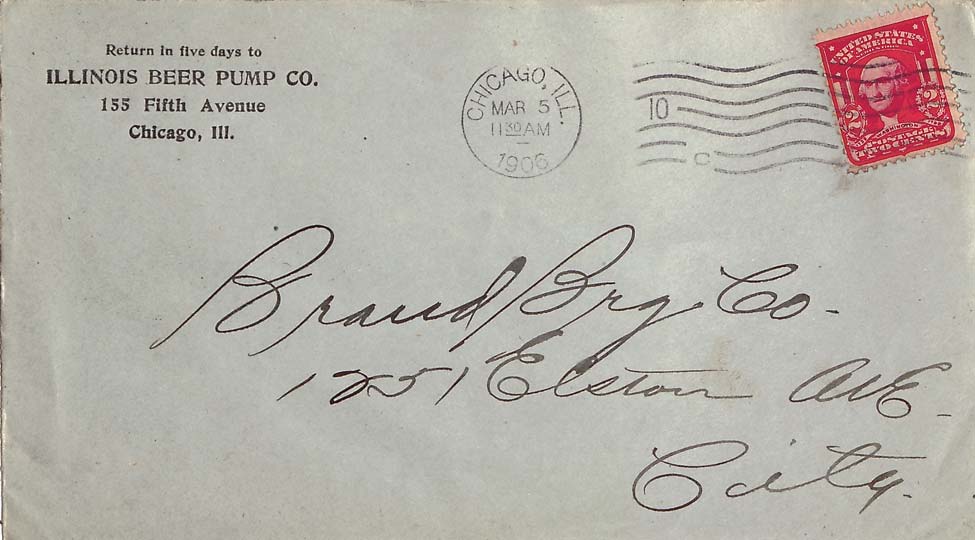 Return in five days to
ILLINOIS BEER PUMP CO.
155 Fifth Avenue
Chicago, Ill.
CHICAGO, ILL.
MAR 5
11 30 AM
1906
10
C
UNITED STATES
OF AMERICA
WASHINGTON
2 2
POSTAGE
TWO CENTS
Brand Brg. Co.
1251 Elston AVE.
City.